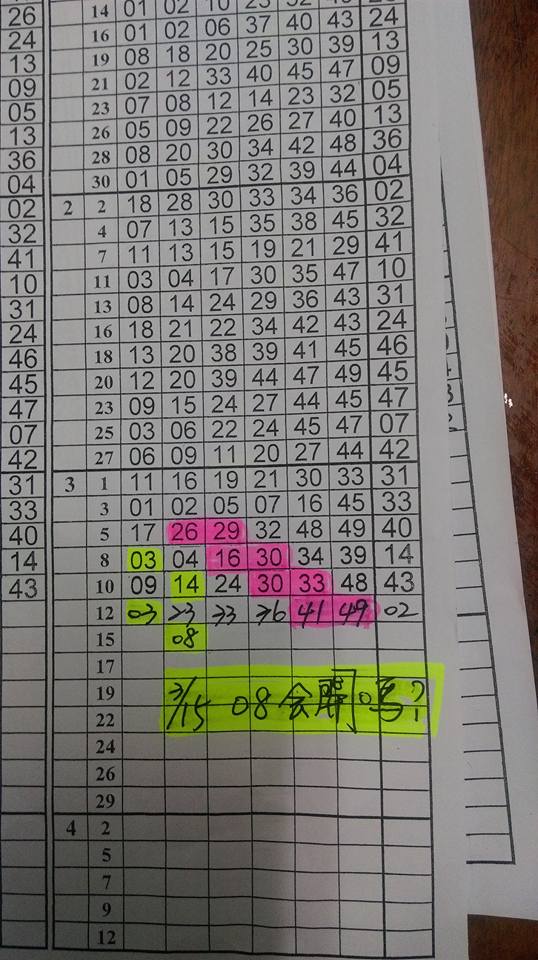 26 14 01 02 10 23
24 16 01 02 06 37 40 43 24
13 19 08 18 20 25 30 39 13
09 21 02 12 33 40 45 47 09
05 23 07 08 12 14 23 32 05
13 26 05 09 22 26 27 40 13
36 28 08 20 30 34 42 48 36
04 30 01 05 29 32 39 44 04
02 2 2 18 28 30 33 34 36 02
32 4 07 13 15 35 38 45 32
41 7 11 13 15 19 21 29 41
10 11 03 04 17 30 35 47 10
31 13 08 14 24 29 36 43 31
24 16 18 21 22 34 42 43 24
46 18 13 20 38 39 41 45 46
45 20 12 20 39 44 47 49 45
47 23 09 15 24 27 44 45 47
07 25 03 06 22 24 45 47 07
42 27 06 09 11 20 27 44 42
31 3 1 11 16 19 21 30 33 31
33 3 01 02 05 07 16 45 33
40 5 17 26 29 32 48 49 40
14 8 03 04 16 30 34 39 14
43 10 09 14 24 30 33 48 43
12 03 23 33 36 41 49 02
15 08
17
19 3/15 08 会開嗎?
22
24
26
29
4 2
5
7
9
12